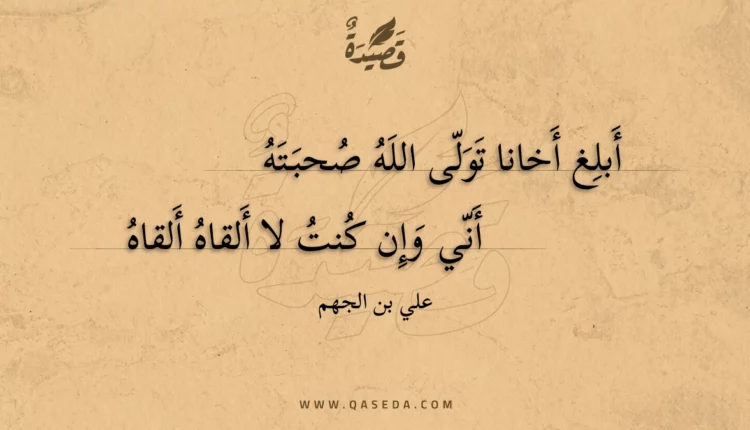 قَصِيدَةٌ
أَبلِغ أَخانا تَوَلّى اللَهُ صُحبَتَهُ
أَنّي وَإِن كُنتُ لا أَلقاهُ أَلقاهُ
علي بن الجهم
WWW.QASEDA.COM